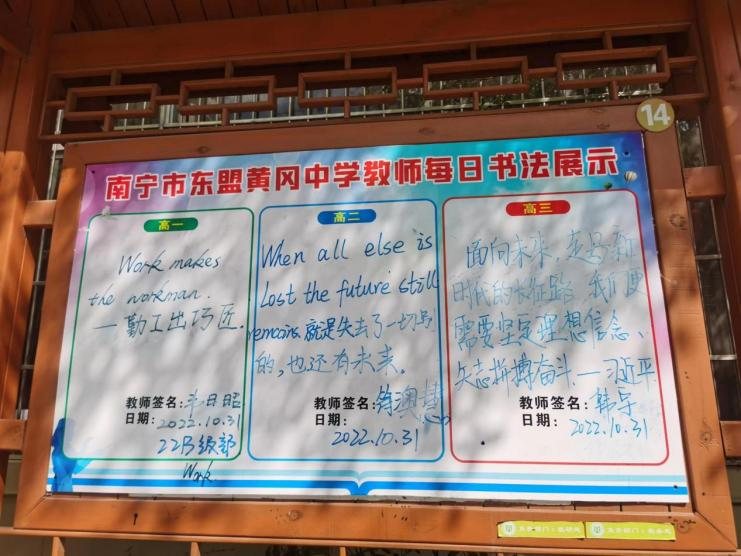 14
南宁市东盟黄冈中学教师每日书法展示
高一
Work makes
the workman.
—勤工出巧匠.
教师签名:
日期: 2022.10.31
22级部
Work
高二
When all else is
Lost the future still
remains 就是失去了一切别
的,也还有未来.
教师签名: 澳慧
日期:
2022.10.31
高三
面向未来,走好新
时代的长征路,我们更
需要坚定理想信念、
矢志拼搏奋斗.—习近平
教师签名: 韩宇
日期: 2022.10.31